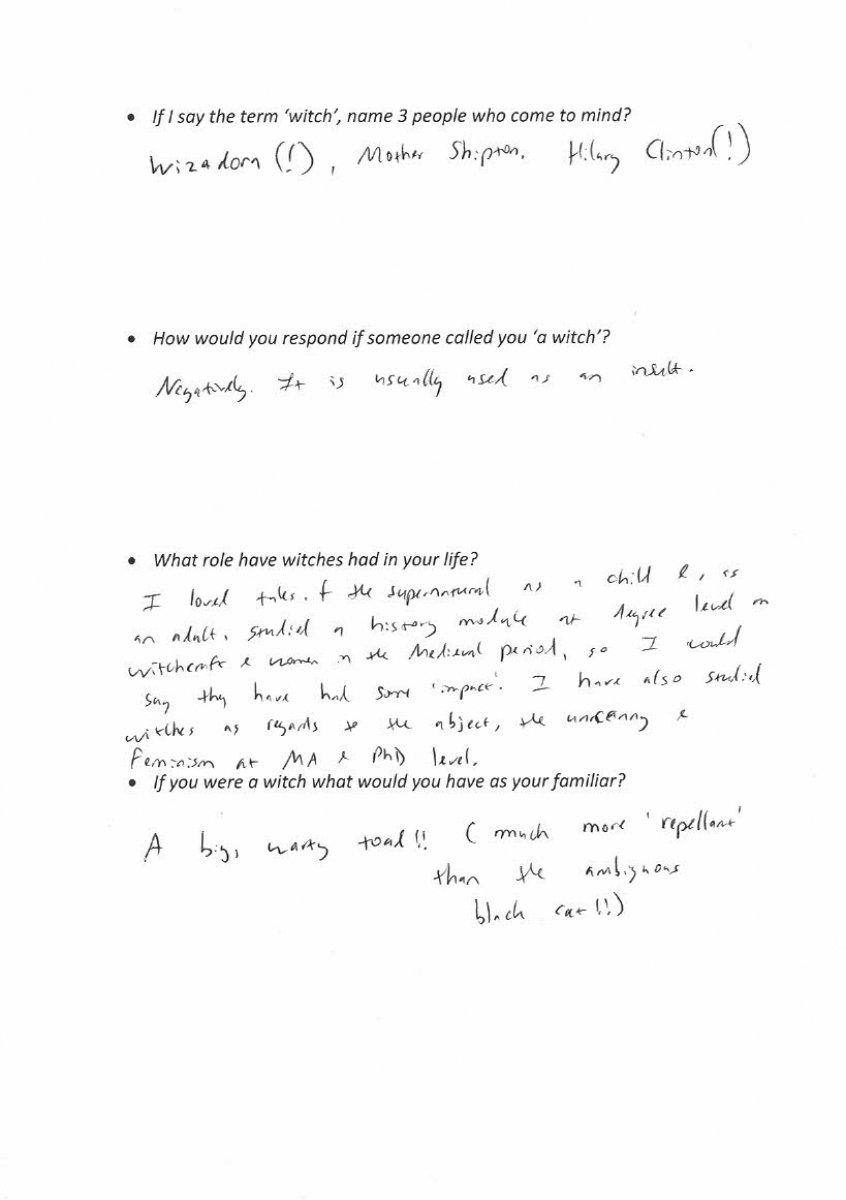 • If I say the term ‘witch’, name 3 people who come to mind?
Wizadora (!), Mother Shipton, Hilary Clinton (!)
• How would you respond if someone called you ‘a witch’?
Negatively. It is usually used as an insult.
• What role have witches had in your life?
I loved tales of the supernatural as a child &, as
an adult, studied a history module at degree level on
witchcraft & women in the Medieval period, so I could
say they have had some 'impact'. I have also studied
witches as regards to the abject, the uncanny &
Feminism at MA & PhD level.
• If you were a witch what would you have as your familiar?
A big, warty toad!! (much more 'repellant'
than the ambiguous
black cat!!)